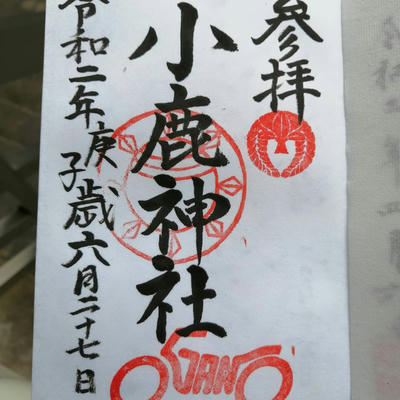 参拝
小鹿神社
令和二年庚子歳六月二十七日
OGANO